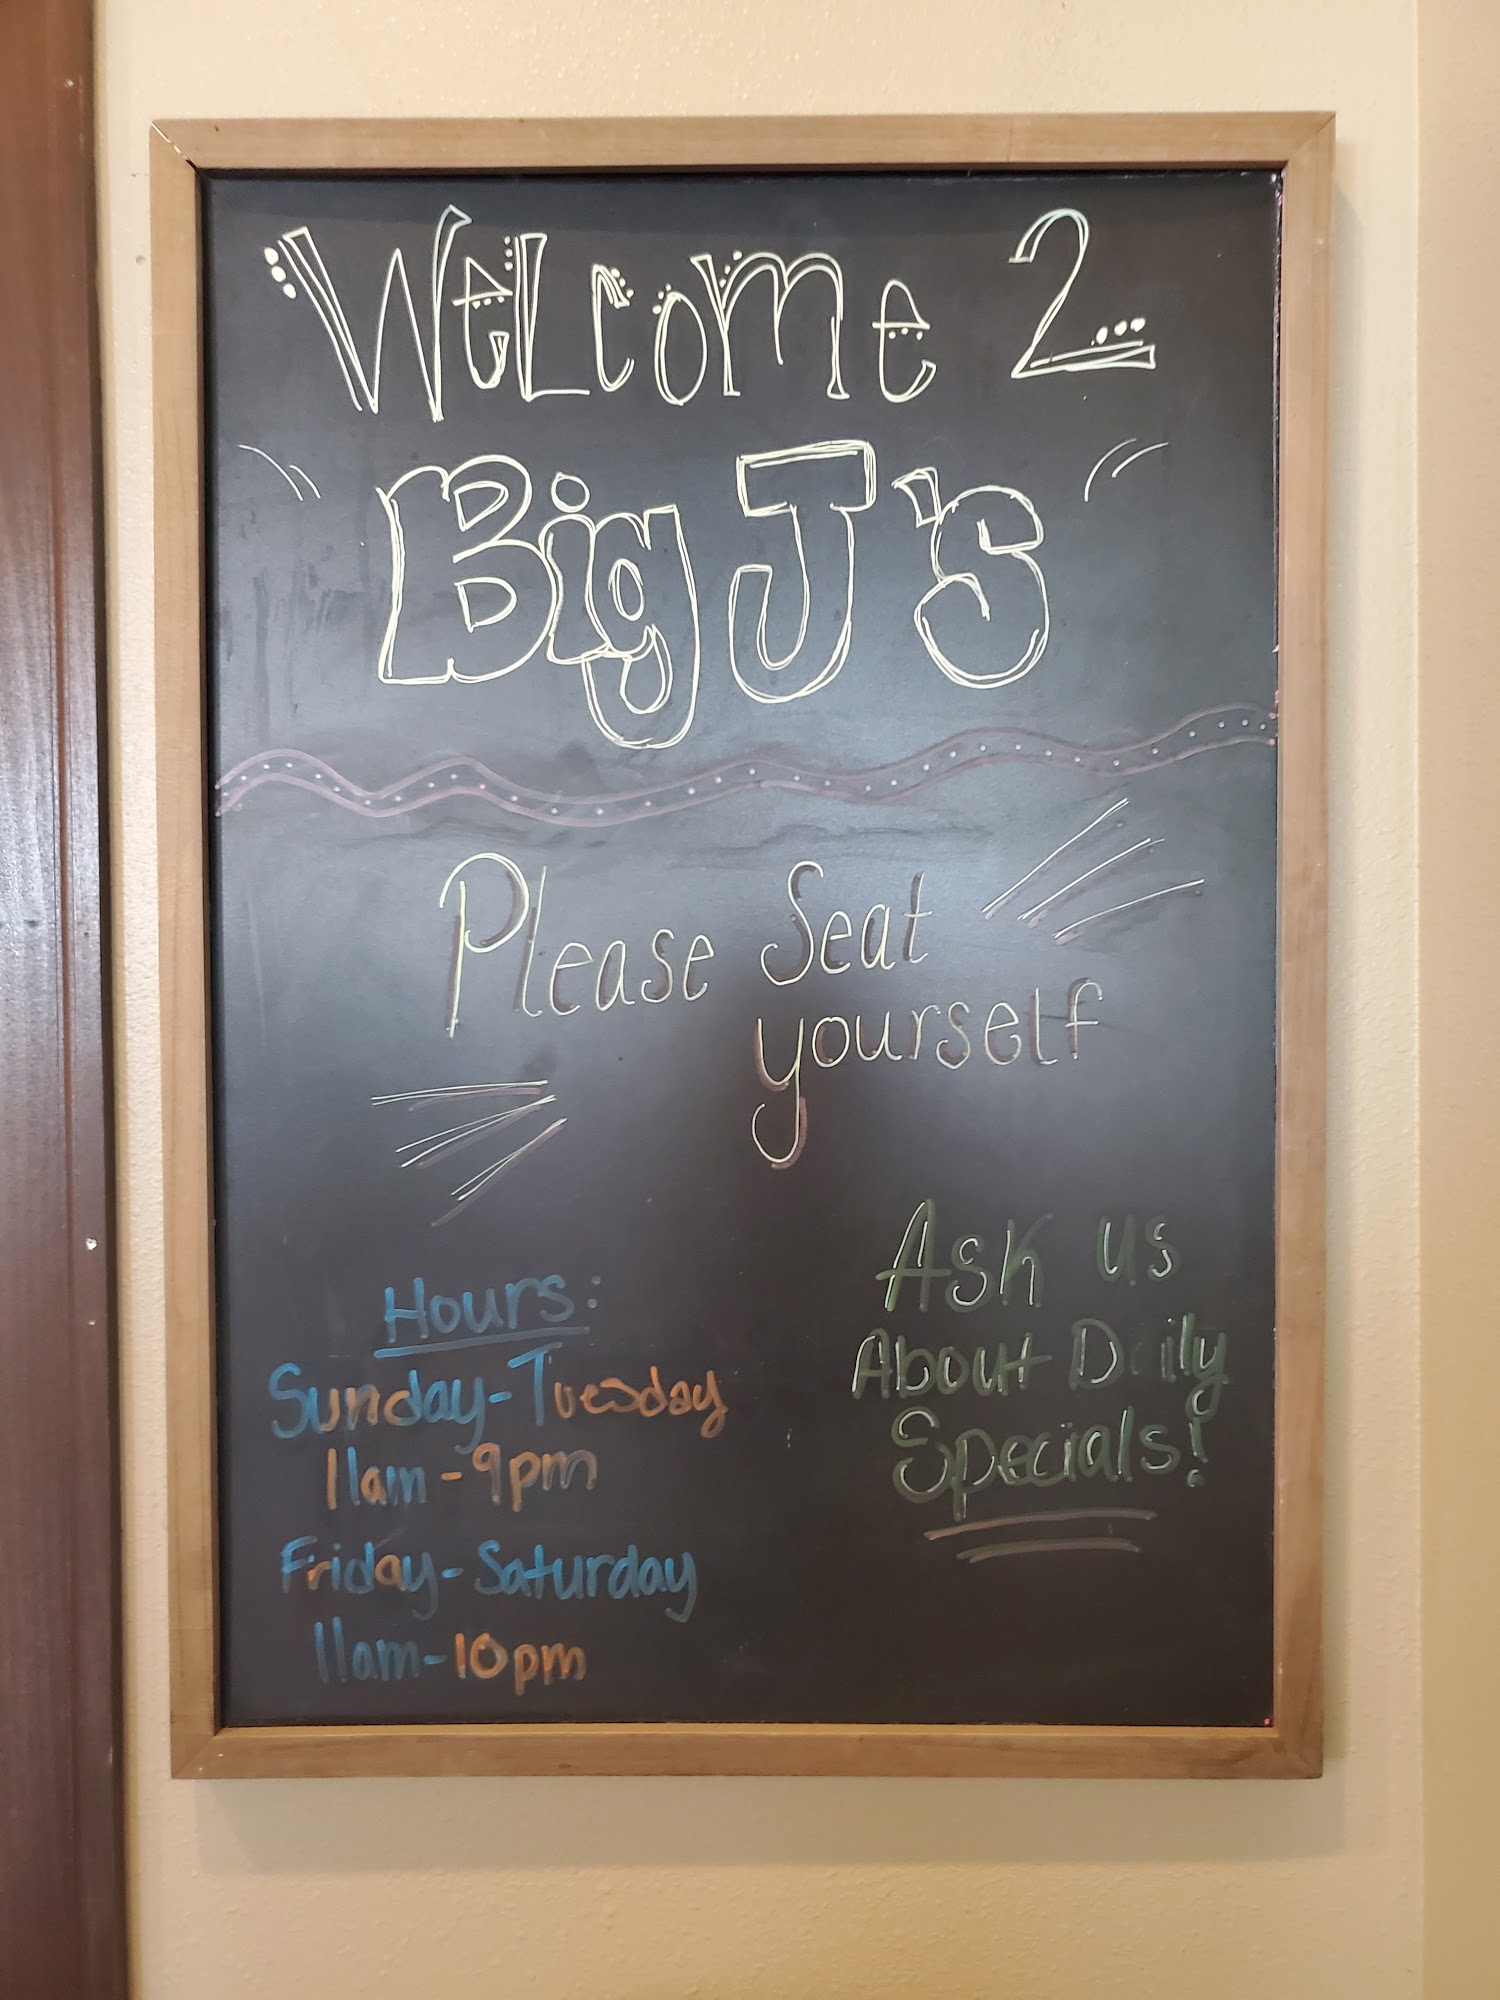 Welcome 2...
Big J's
Please Seat
yourself
Hours:
Sunday-Tuesday
11am-9pm
Friday-Saturday
11am-10pm
Ask us
About D ily
Specials!